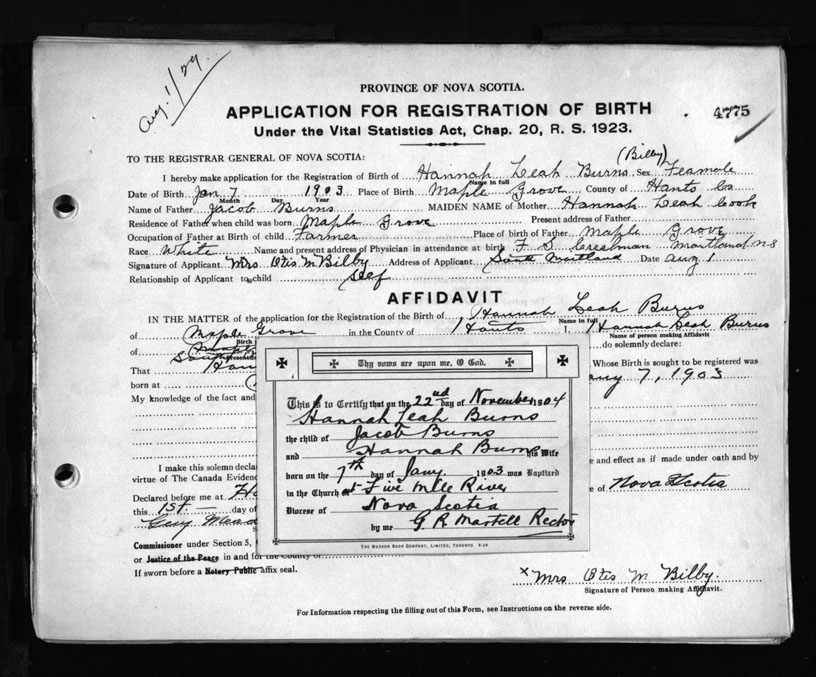 Aug. 1/29.
PROVINCE OF NOVA SCOTIA.
APPLICATION FOR REGISTRATION OF BIRTH
4775
Under the Vital Statistics Act, Chap. 20, R. S. 1923.
TO THE REGISTRAR GENERAL OF NOVA SCOTIA:
(Bilby)
I hereby make application for the Registration of Birth of Hannah Leah Burns Sex Feamale
Name in full
Date of Birth Jan 7 1903 Place of Birth Maple Grove County of Hants Co
Month Day Year
Name of Father Jacob Burns MAIDEN NAME of Mother Hannah Leah Cook
Residence of Father when child was born Maple Grove Present address of Father
Occupation of Father at Birth of child Farmer Place of birth of Father Maple Grove
Race White Name and present address of Physician in attendance at birth F S Creelman Maitland N S
Signature of Applicant Mrs Otis M Bilby Address of Applicant South Maitland Date Aug 1
Relationship of Applicant to child Self
AFFIDAVIT
IN THE MATTER of the application for the Registration of the Birth of Hannah Leah Burns
Name in full
of Maple Grove in the County of Hants I, Hannah Leah Burns
Birth Name of person making Affidavit
of South do solemnly declare:
That Han Whose Birth is sought to be registered was
born at uary 7, 1903
My knowledge of the fact and
Thy vows are upon me, O God.
This is to Certify that on the 22nd day of November 1904
Hannah Leah Burns
the child of Jacob Burns
and Hannah Burns his Wife
born on the 7th day of Jany. 1903 was Baptized
in the Church at Five Mile River
Diocese of Nova Scotia
by me G R Martell Rector
THE MUSSON BOOK COMPANY, LIMITED, TORONTO
I make this solemn declar e and effect as if made under oath and by
virtue of The Canada Evidenc
Declared before me at e of Nova Scotia
this 1st. day of
Guy
Commissioner under Section 5,
or Justice of the Peace in and for the County of
If sworn before a Notary Public affix seal.
x Mrs Otis M Bilby.
Signature of Person making Affidavit.
For Information respecting the filling out of this Form, see Instructions on the reverse side.